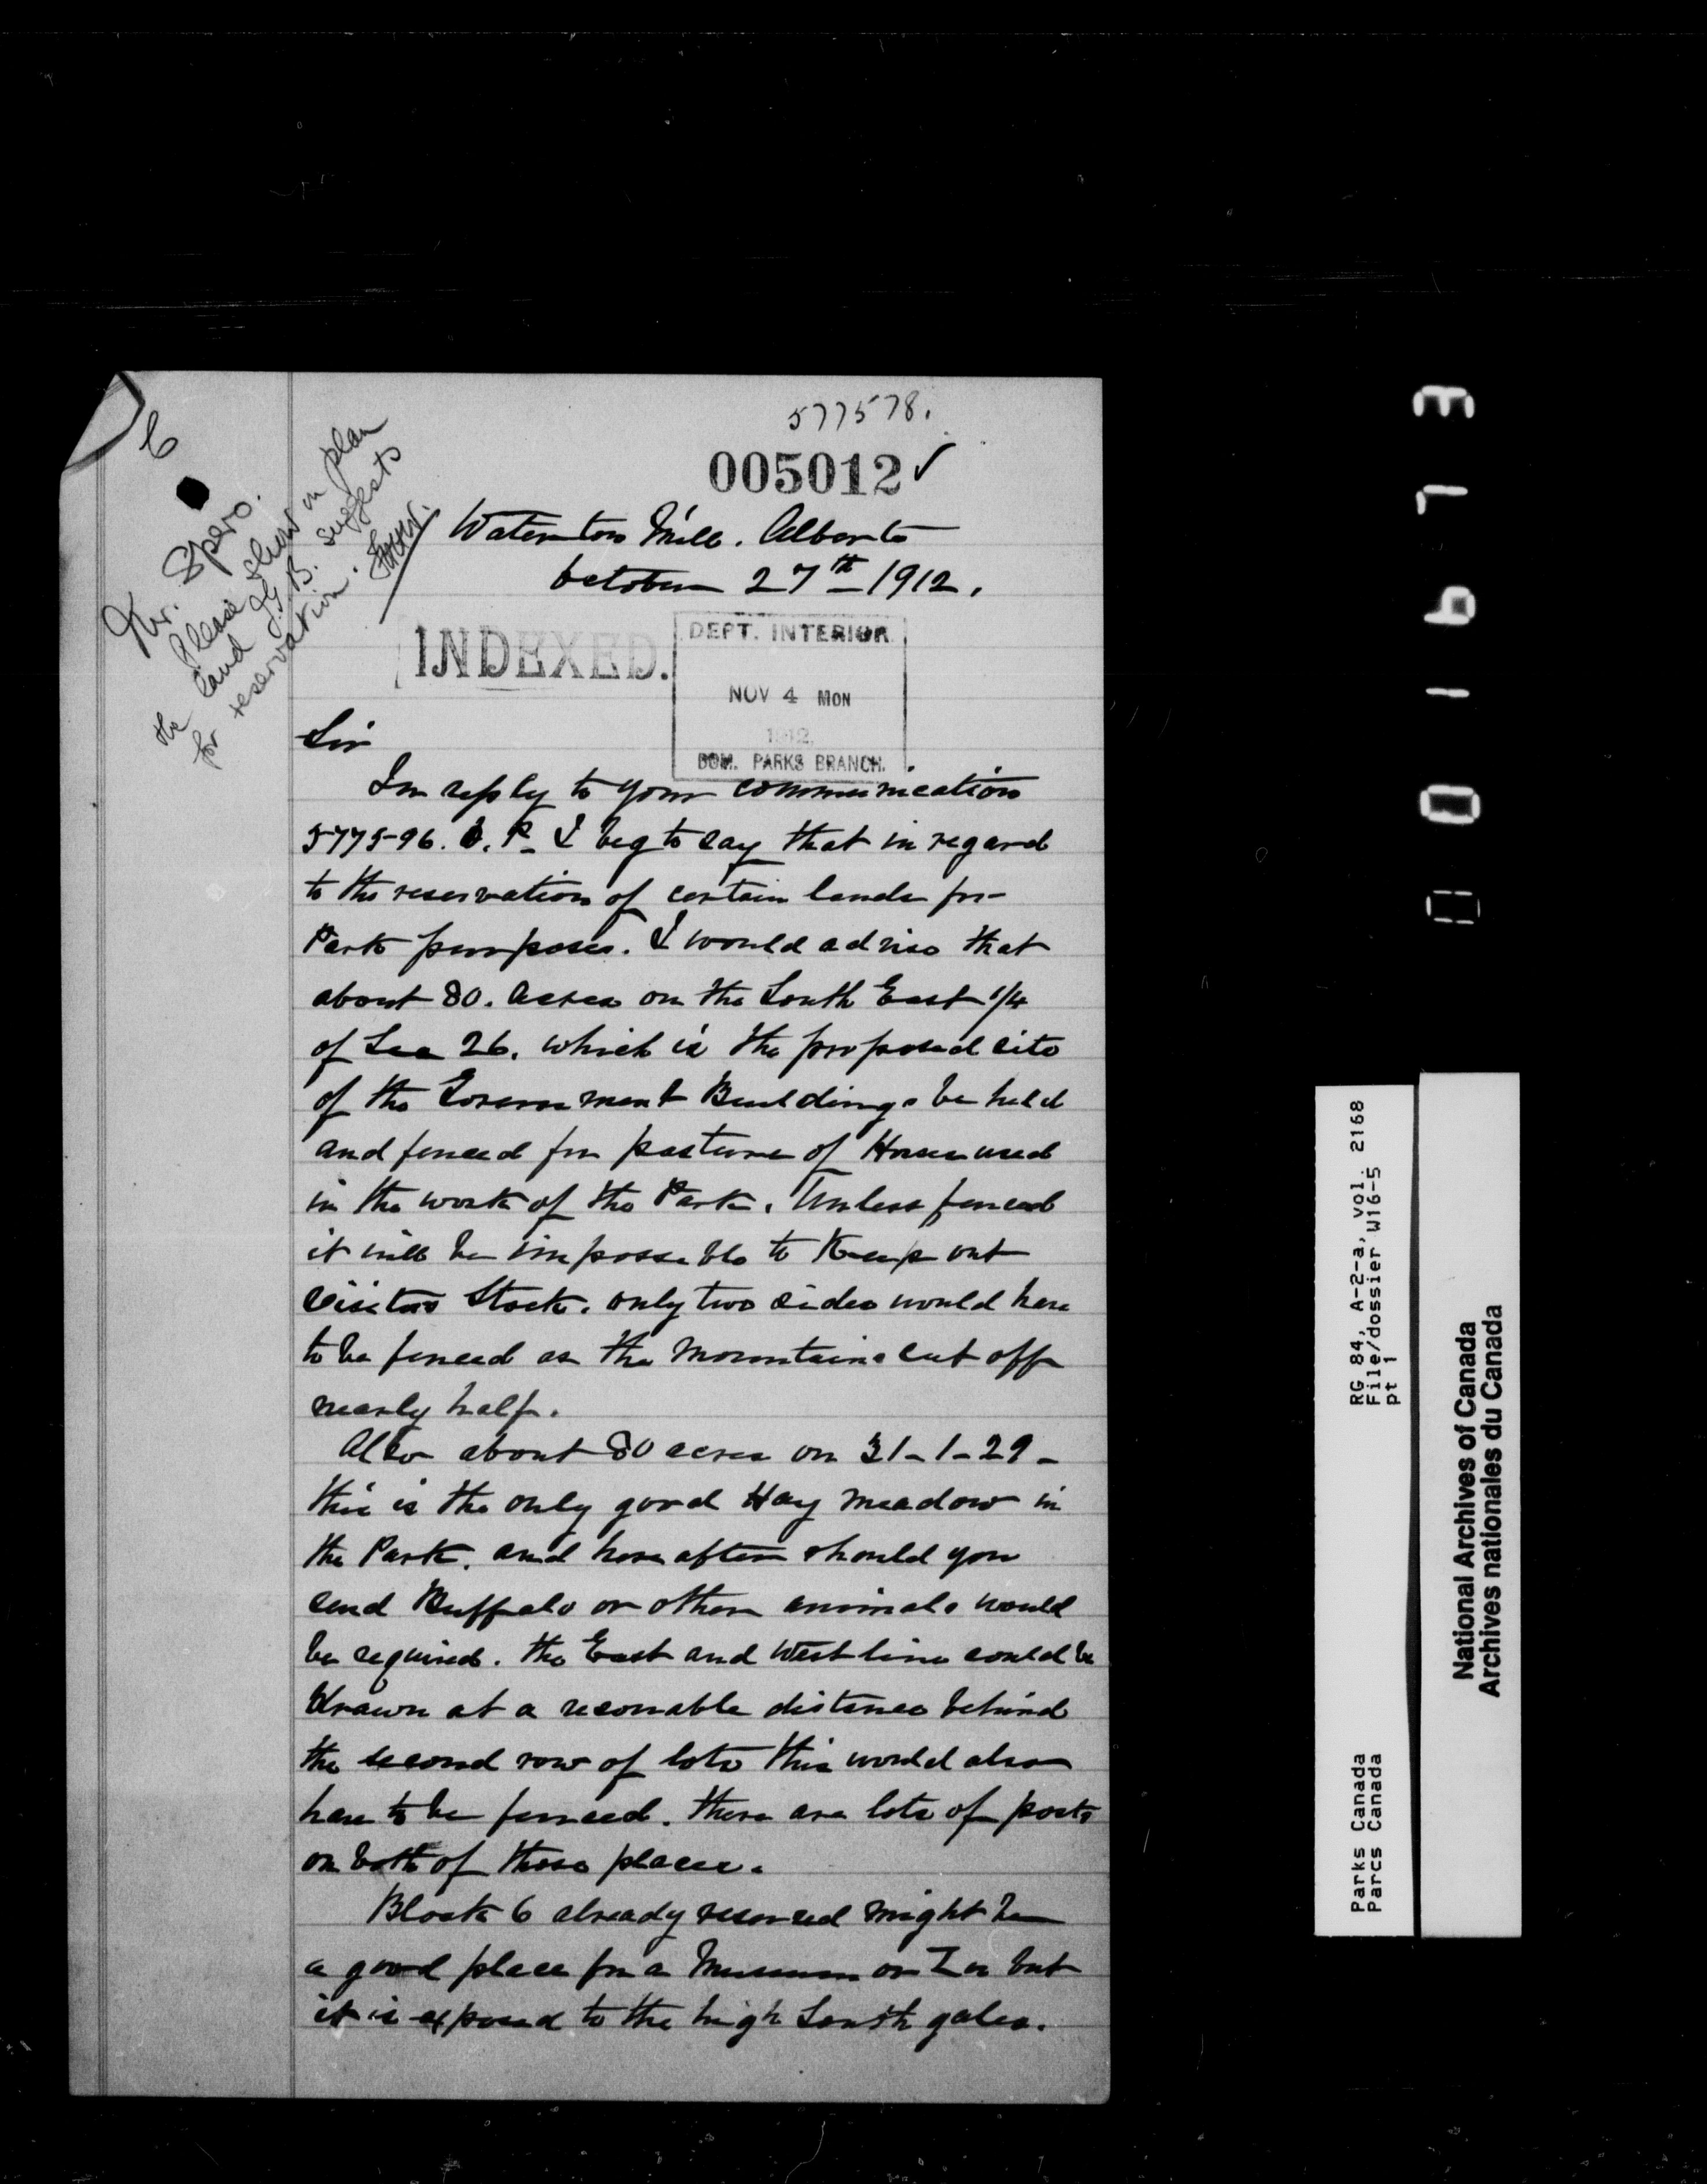 577578.
005012 ✓
Waterton Mill. Alberta
October 27th 1912.
6
Mr. Spero.
Please show on plan
the land J.G.B. suggests
for reservation.
INDEXED.
DEPT. INTERIOR
NOV 4 MON
1912
DOM. PARKS BRANCH.
Sir
In reply to your communication
577596. D. P. I beg to say that in regard
to the reservation of certain lands for
Park purposes. I would advise that
about 80. Acres on the South East 1/4
of Sec 26. which is the proposed site
of the Government Buildings be held
and fenced for pasture of Horses used
in the work of the Park. Unless fenced
it will be impossible to Keep out
visitors Stock. only two sides would have
to be fenced as the Mountains cut off
nearly half.
Also about 80 acres on 31-1-29-
this is the only good Hay meadow in
the Park. and hereafter should you
send Buffalo or other animals would
be required. the East and West line could be
drawn at a resonable distance behind
the second row of lots this would also
have to be fenced. there are lots of posts
on both of those places.
Block 6 already reserved might be
a good place for a Museum or Zoo but
it is exposed to the high South gales.
001673
RG 84, A-2-a, vol. 2168
File/dossier W16-5
pt 1
Parks Canada
Parcs Canada
National Archives of Canada
Archives nationales du Canada